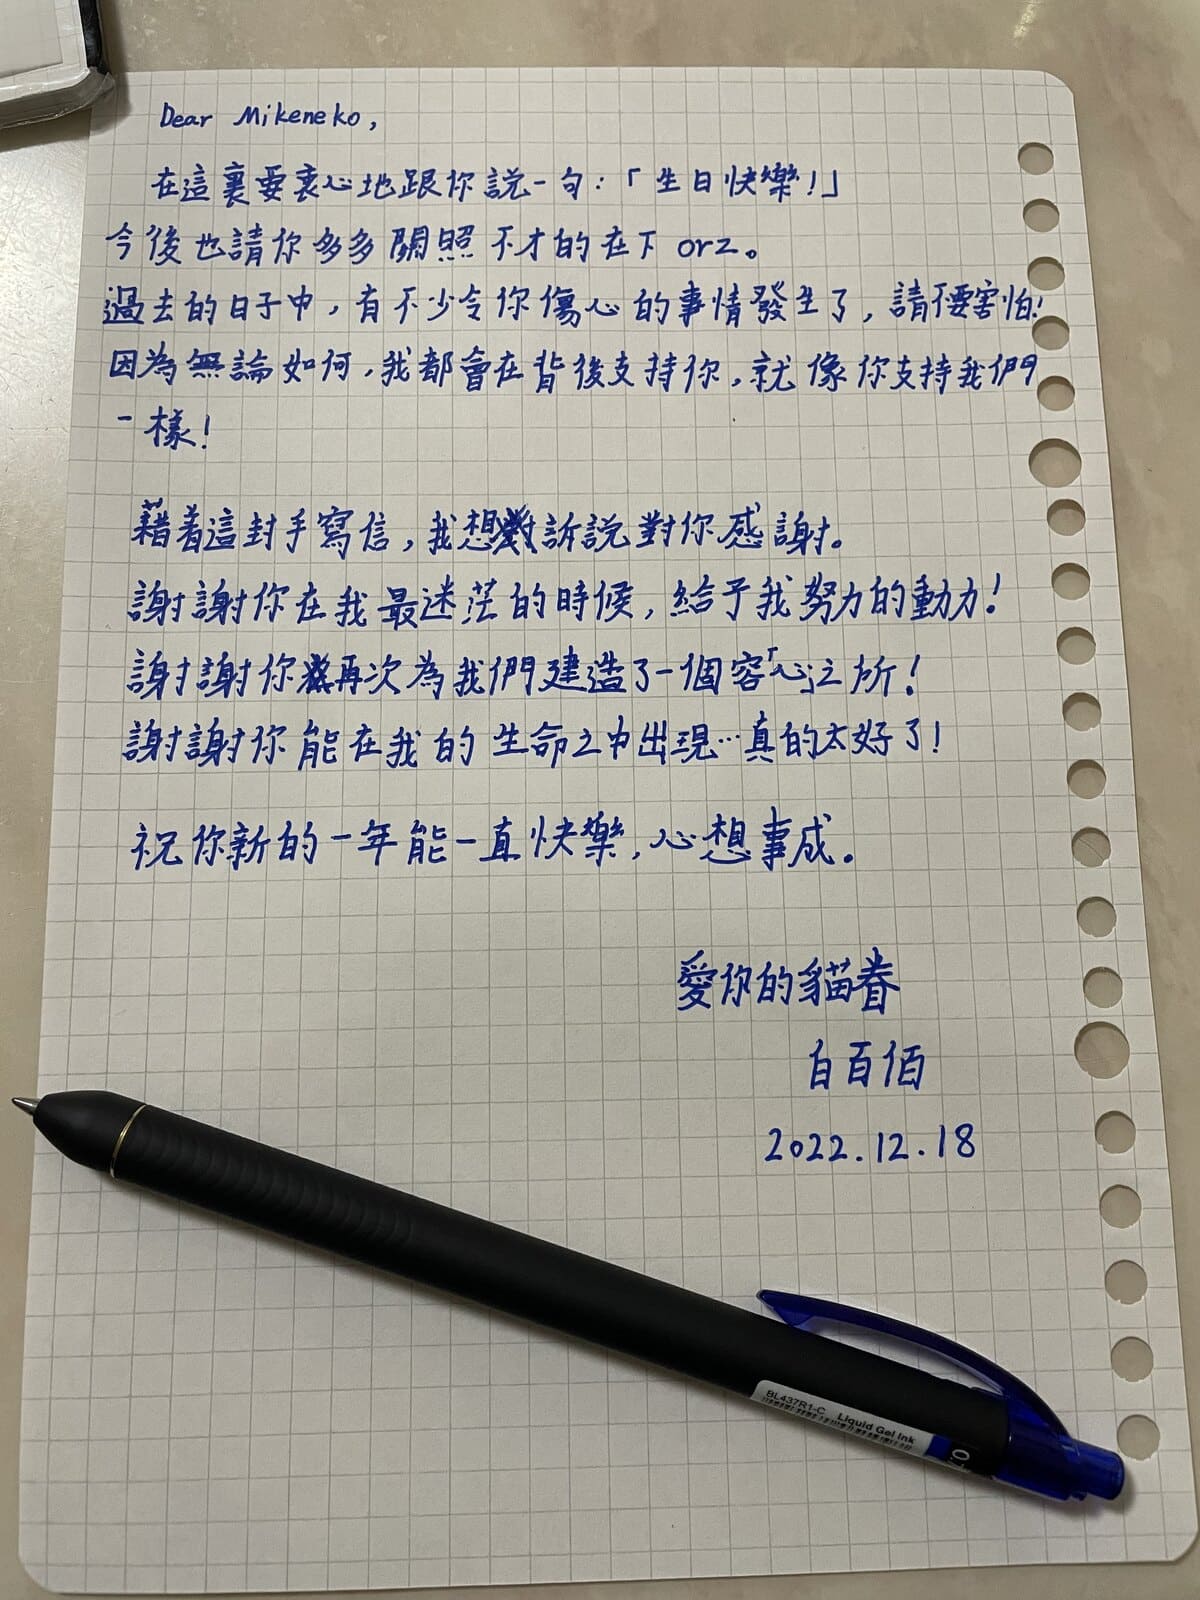 Dear Mikeneko,
在這裏要衷心地跟你說一句:「生日快樂!」
今後也請你多多關照不才的在下 orz。
過去的日子中,有不少令你傷心的事情發生了,請不要害怕!
因為無論如何,我都會在背後支持你,就像你支持我們
一樣!
藉着這封手寫信,我想訴說對你感謝。
謝謝你在我最迷茫的時候,給予我努力的動力!
謝謝你再次為我們建造了一個容「心」之所!
謝謝你能在我的生命之中出現…真的太好了!
祝你新的一年能一直快樂,心想事成。
愛你的貓眷
白百佰
2022.12.18
BL437R1-C Liquid Gel Ink
0.7